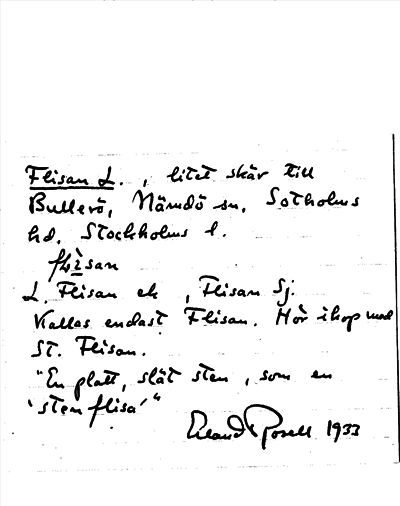 Flisan L., litet skär till
Bullerö, Nämdö sn, Sotholms
hd. Stockholms l.
flìsan
L. Flisan ek, Flisan Sj.
Kallas endast Flisan. Hör ihop med
St. Flisan.
"En platt, slät sten, som en
'stenflisa'"
Erland Rosell 1933